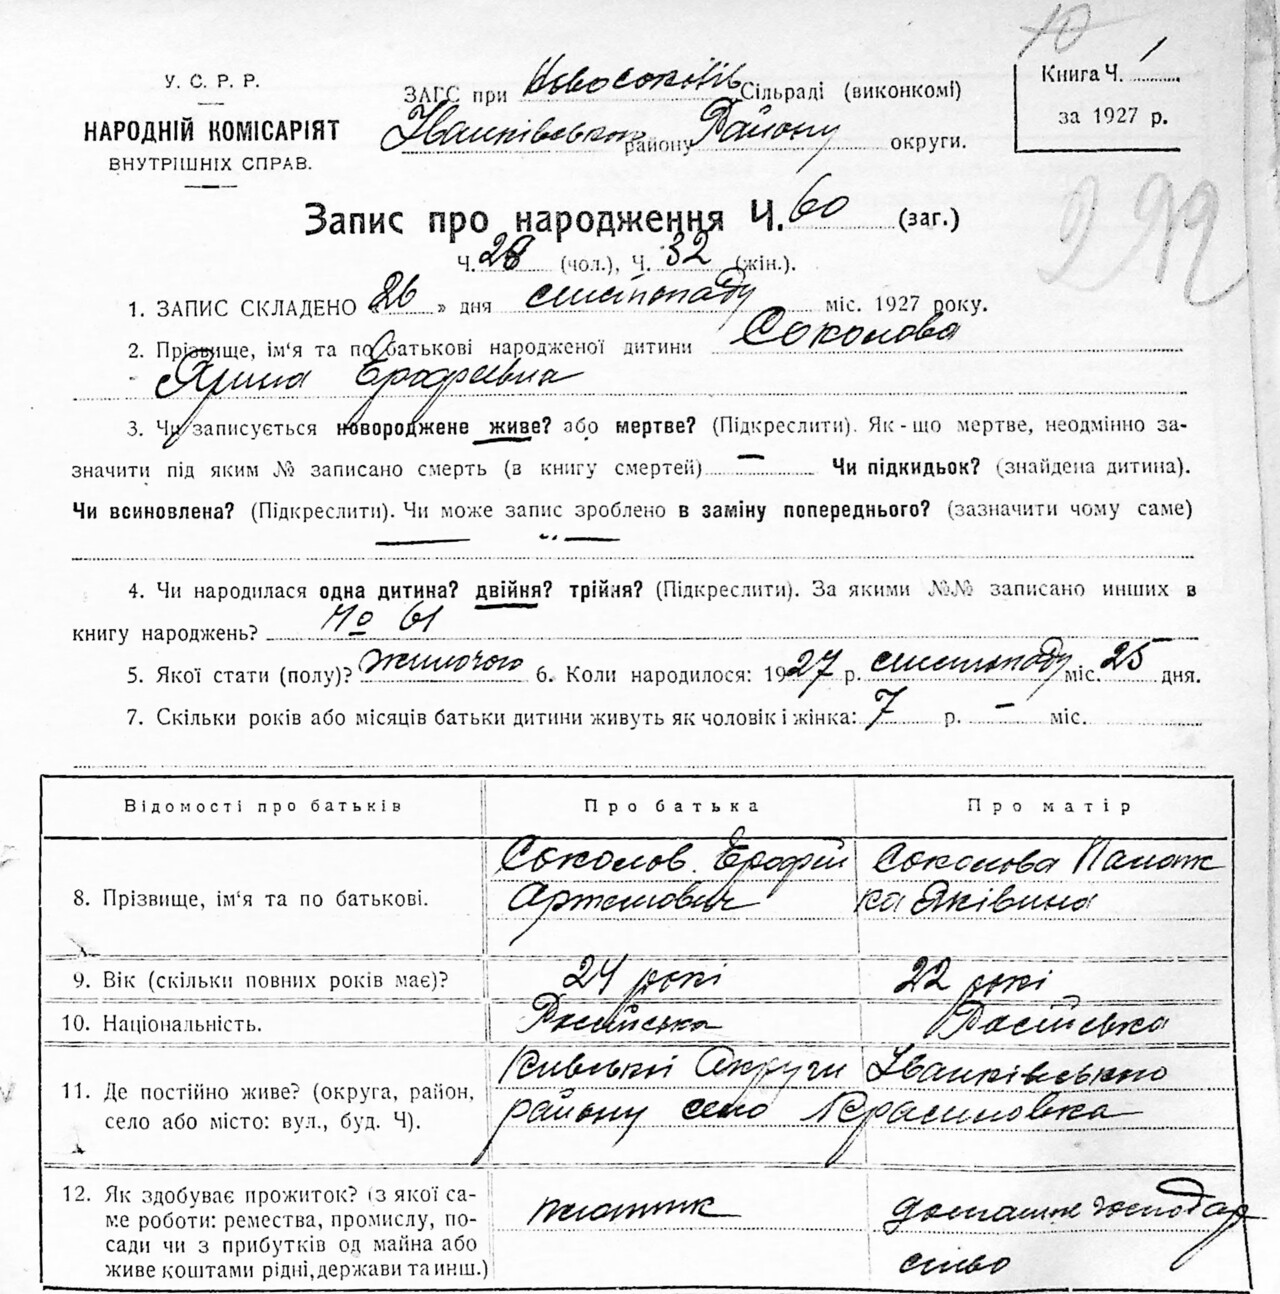 10
У. С. Р. Р.
НАРОДНІЙ КОМІСАРІЯТ
ВНУТРІШНІХ СПРАВ.
ЗАГС при Сільраді (виконкомі)
Іванківського району Району округи.
Книга Ч. 1
за 1927 р.
292
Запис про народження Ч. 60 (заг.)
Ч. 28 (чол.), Ч. 32 (жін.).
1. ЗАПИС СКЛАДЕНО «26» дня листопаду міс. 1927 року.
2. Прізвище, ім'я та по батькові народженої дитини Соколова
Ярина Ерофеевна
3. Чи записується новороджене живе? або мертве? (Підкреслити). Як-що мертве, неодмінно за-
значити під яким № записано смерть (в книгу смертей) — Чи підкидьок? (знайдена дитина).
Чи всиновлена? (Підкреслити). Чи може запис зроблено в заміну попереднього? (зазначити чому саме)
4. Чи народилася одна дитина? двійня? трійня? (Підкреслити). За якими №№ записано инших в
книгу народжень? No 61
5. Якої стати (полу)? жіночого 6. Коли народилося: 1927 р. листопаду міс. 25 дня.
7. Скільки років або місяців батьки дитини живуть як чоловік і жінка: 7 р. — міс.
Відомості про батьків Про батька Про матір
8. Прізвище, ім'я та по батькові. Соколов Ерофій Артемович Соколова Палажка Яківина
9. Вік (скільки повних років має)? 24 рокі 22 рокі
10. Національність. Російська Расійська
11. Де постійно живе? (округа, район, Київської Округи Іванківського
село або місто: вул., буд. Ч). району село Красиловка
12. Як здобуває прожиток? (з якої са-
ме роботи: ремества, промислу, по-
сади чи з прибутків од майна або
живе коштами рідні, держави та инш.)
домашнє господар
ство